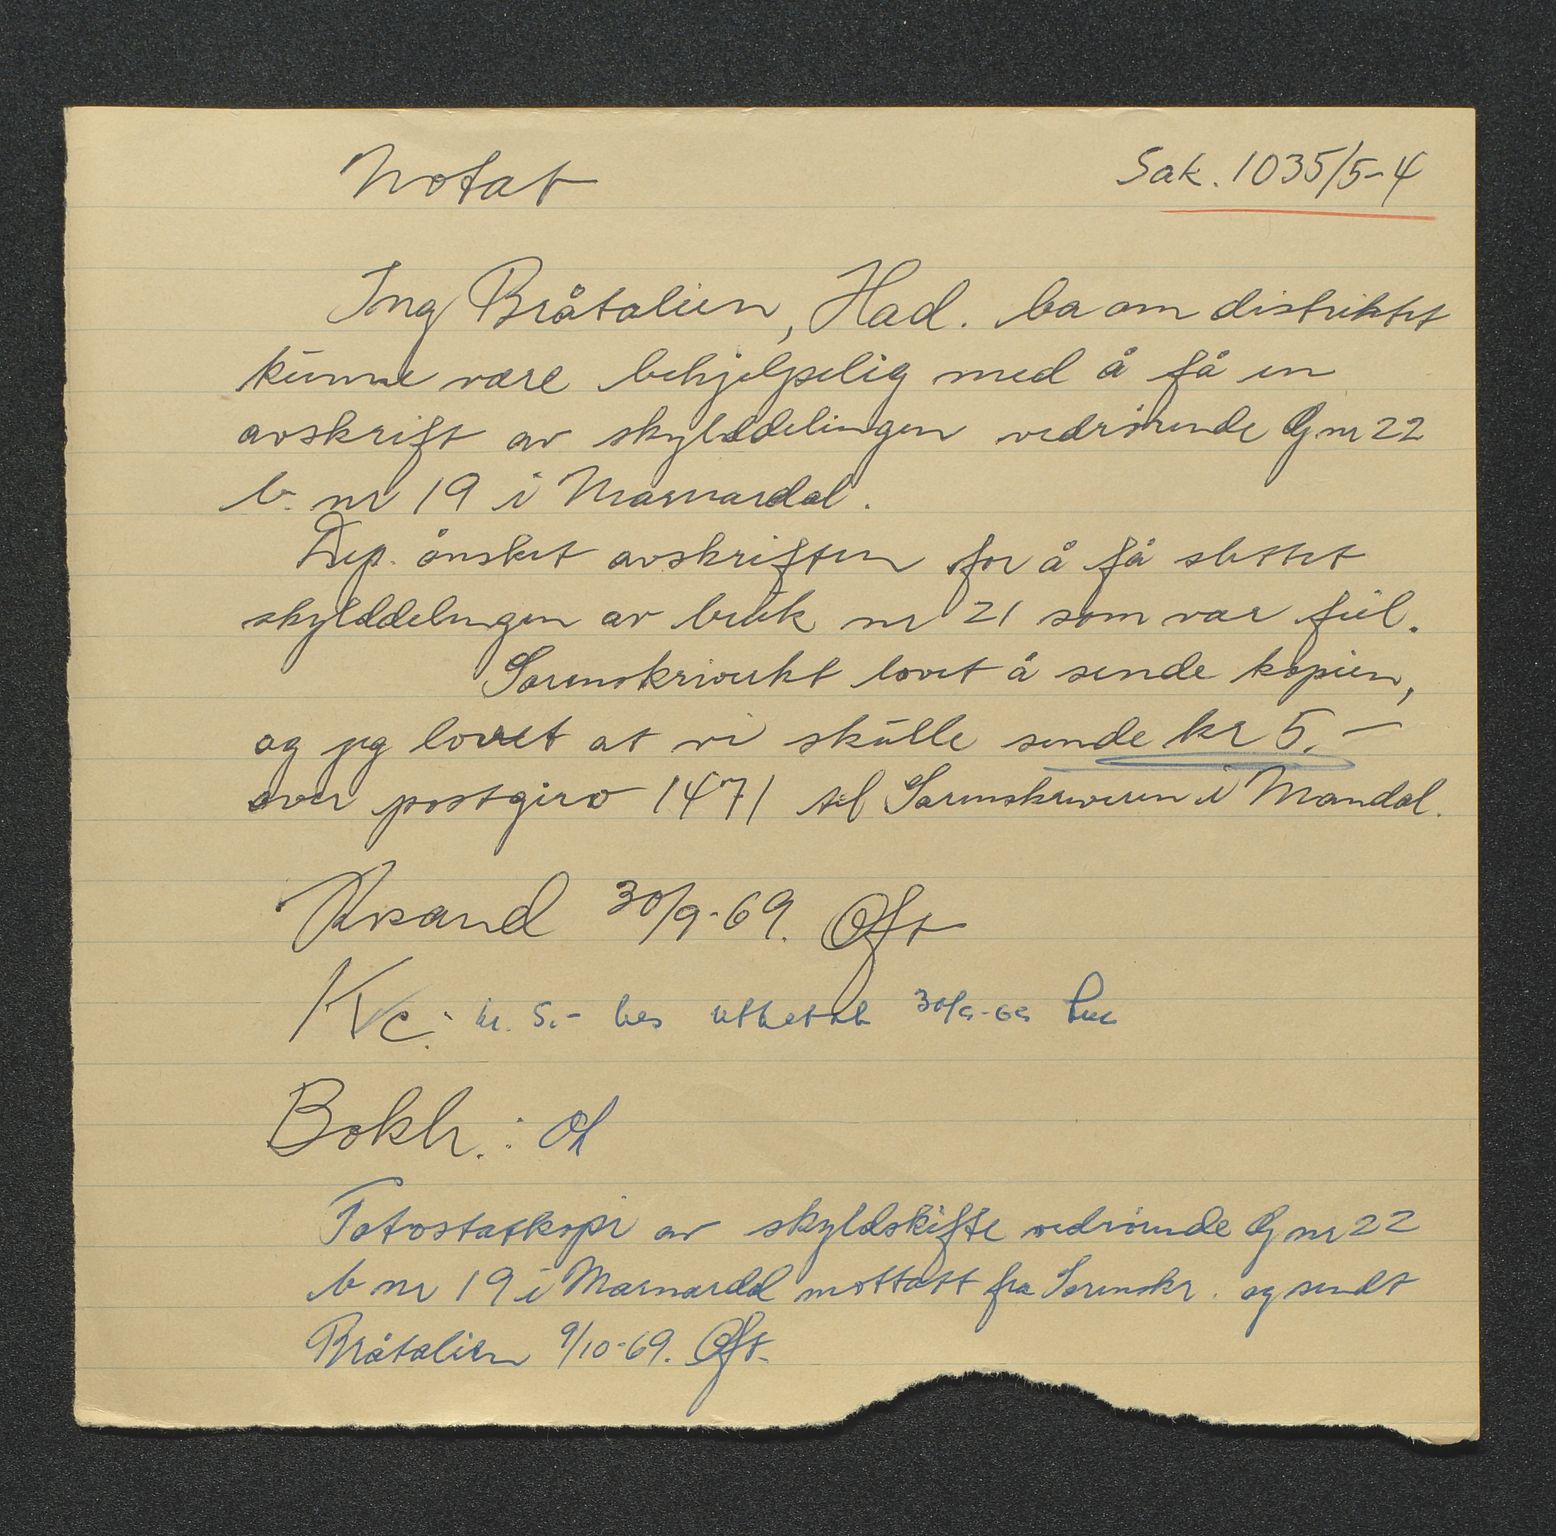 Notat
Sak. 1035/5-4
Ing Bråtalien, Had. ba om distriktet
kunne være behjelpelig med å få en
avskrift av skylddelingen vedrörende G nr 22
b. nr 19 i Marnardal.
Dep. önsket avskriften for å få slettet
skylddelingen av bruk nr 21 som var feil.
Sorenskriveriet lovet å sende kopien,
og jeg lovet at vi skulle sende kr 5.-
over postgiro 1471 til Sorenskriveren i Mandal.
Krsand 30/9-69. Oft
K/c: kr. 5.- bes utbetalt 30/9-69
Bokh.:
Fotostatkopi av skyldskifte vedrörende G nr 22
b nr 19 i Marnardal mottatt fra Sorenskr. og sendt
Bråtalien 9/10-69. Oft.